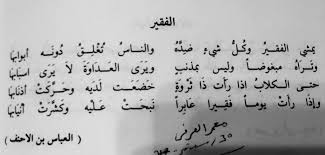 الفقير
يمشي الفقيرُ وكلُّ شيءٍ ضدَّهُ والناسُ تُغلِقُ دونَه أبوابَها
وتَراهُ مبغوضاً وليس بمذنبٍ ويَرى العداوةَ لا يَرى أسبابَها
حتى الكلابُ اذا رأت ذا ثروةٍ خضعت لديه وحركت أذنابَها
وإذا رأت يوماً فقيراً عابراً نبحت عليه وكشرت أنيابَها
(العباس بن الاحنف)